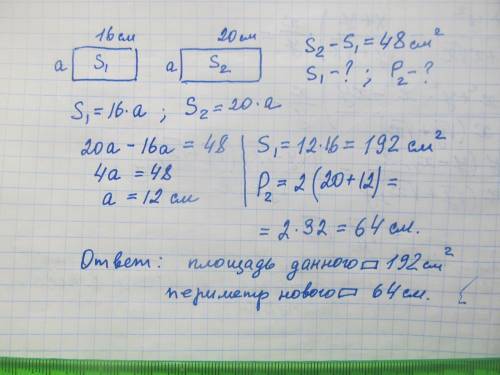 16см 20см S₂-S₁=48см²
a S₁ a S₂ S₁-? ; P₂-?
S₁=16·a ; S₂=20·a
20a-16a=48
4a=48
a=12см
S₁=12·16=192 см²
P₂=2(20+12)=
=2·32=64см.
Ответ: площадь данного▭ 192см²
периметр нового▭ 64см.